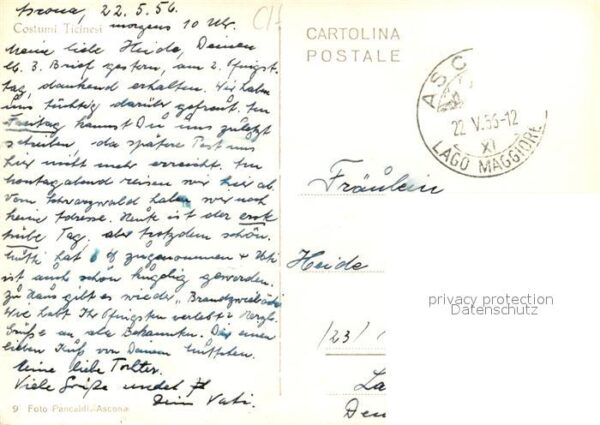 Ascona, 22.5.56.
Costumi Ticinesi morgens 10 Uhr.
Meine liebe Heide, Deinen
lb. 3. Brief gestern, am 2. Pfingst-
tag, dankend erhalten. Wir haben
uns tüchtig darüber gefreut. Am
Freitag kannst Du uns zuletzt
schreiben, da spätere Post uns
hier nicht mehr erreicht. Am
Montagabend reisen wir hier ab.
Vom Schwarzwald haben wir noch
keine Adresse. Heute ist der erste
trübe Tag, aber trotzdem schön.
Mutti hat 6 zugenommen + Vati
ist auch schön kugelig geworden.
Zu Haus gibt es wieder
Wie habt Ihr Pfingsten verlebt? Herzl.
Grüße an alle Bekannten. Dir einen
lieben Kuß von Deinem
Meine liebe Tochter.
Viele Grüße sendet
Dein Vati.
9 Foto Pancaldi, Ascona
CARTOLINA
POSTALE
ASC
22 V.56-12
XI
LAGO MAGGIORE
Fräulein
Heide
privacy protection
Datenschutz
/23/
La
Den